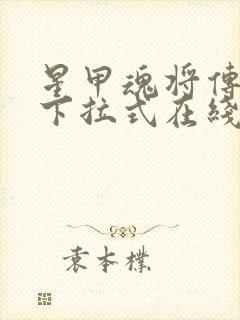 星甲魂将傳
下拉式在綫
袁本樸